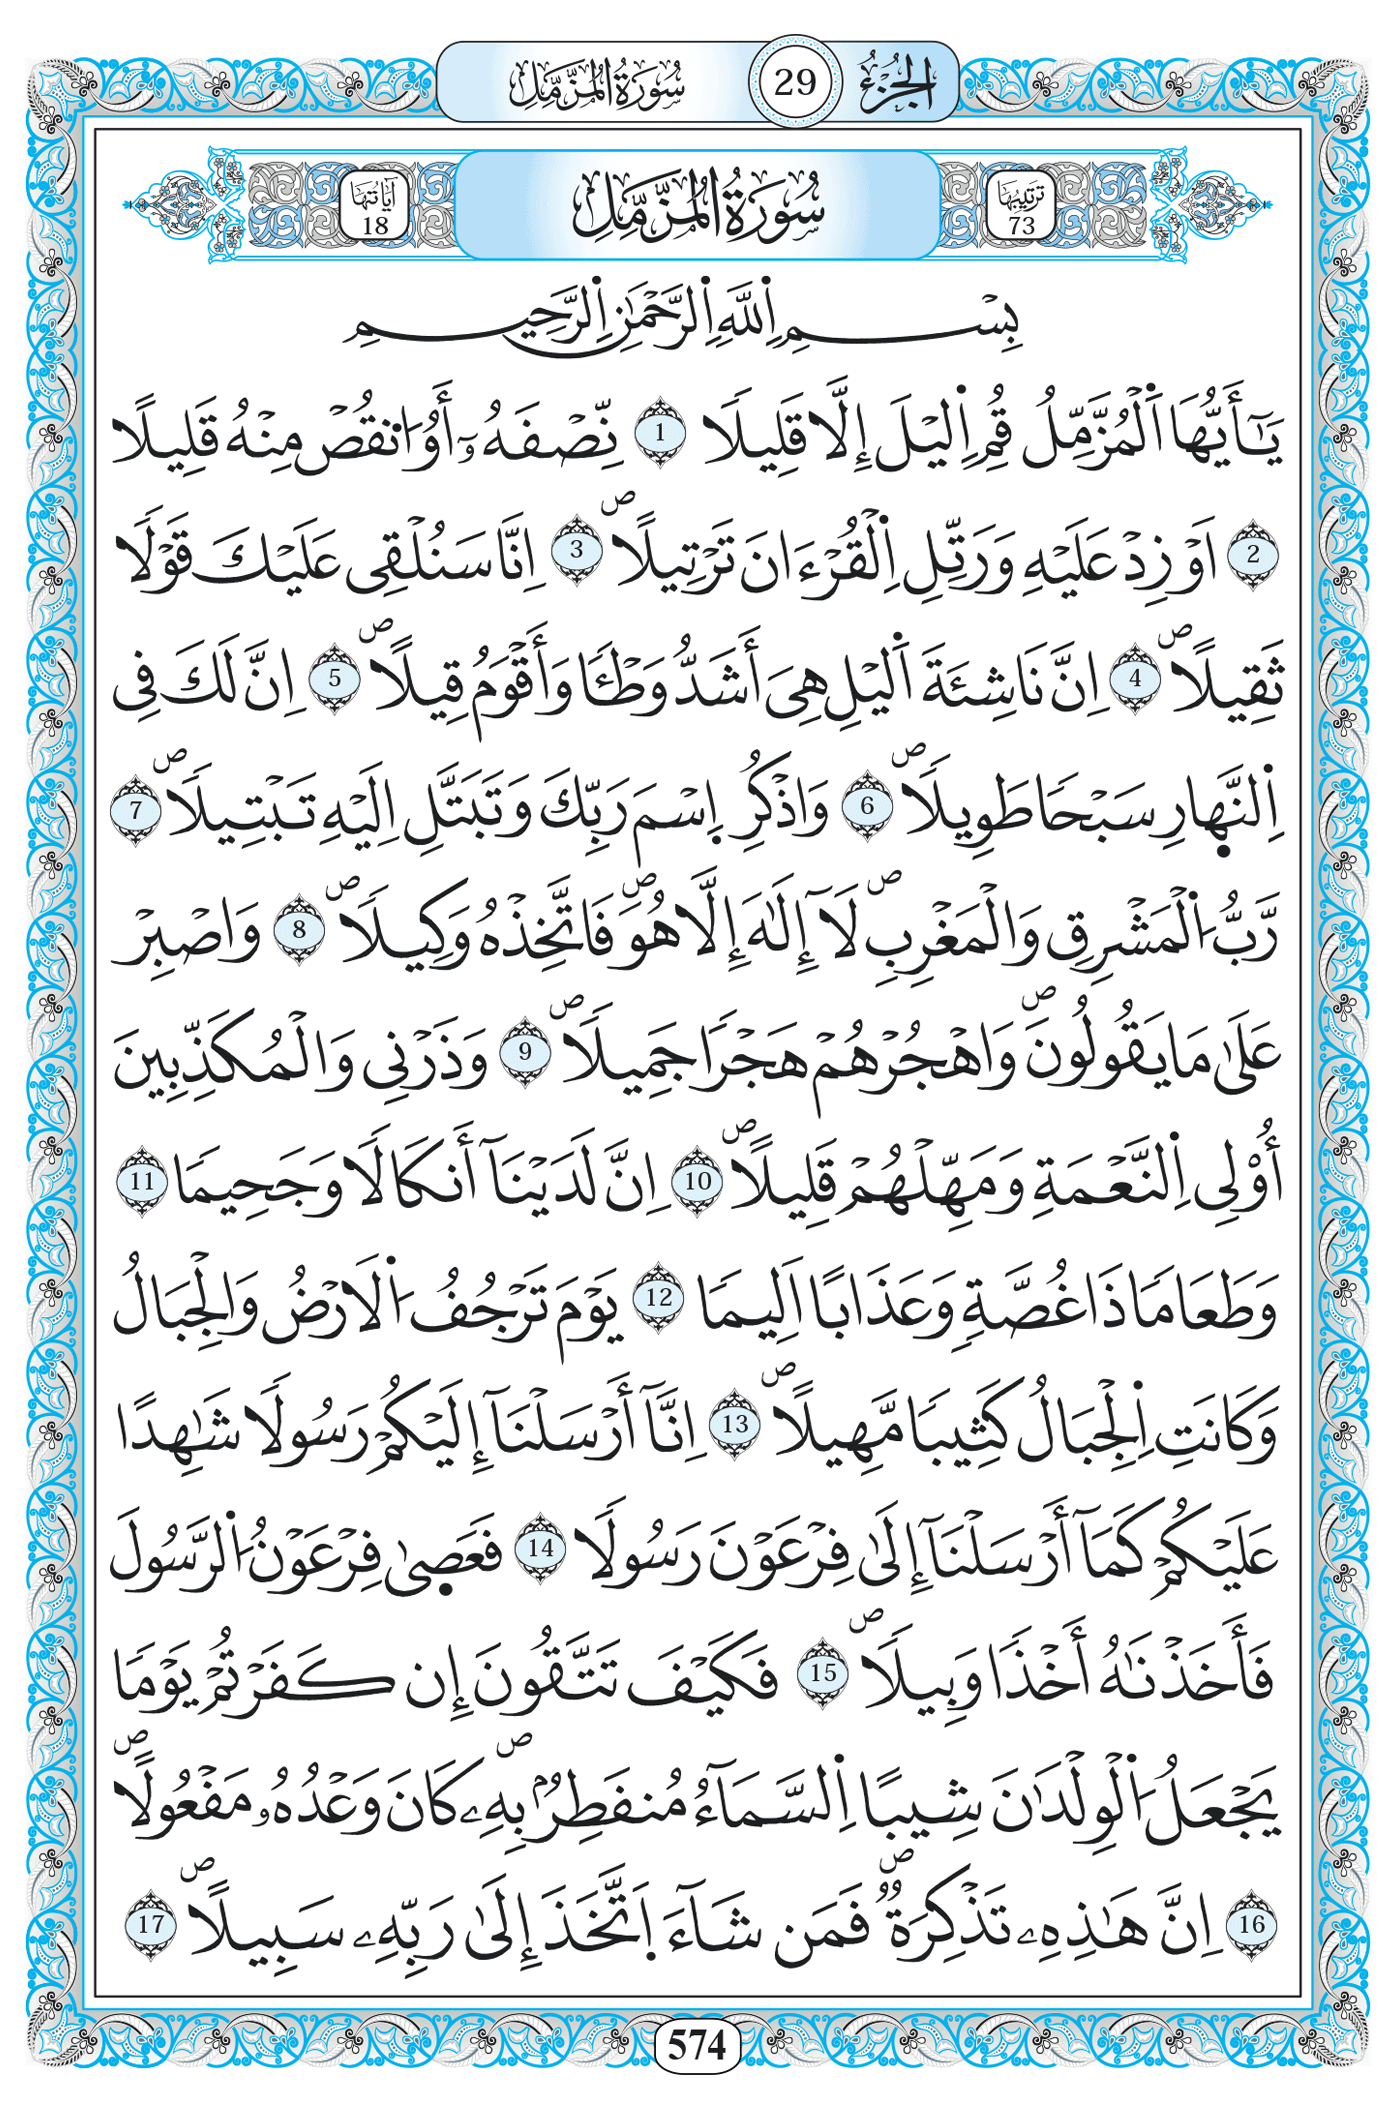 الجزء 29 سورة المزمل
ترتيبها 73 سُورَةُ المُزَّمِّلِ آياتها 18
بِسْمِ اِللَّهِ اِلرَّحْمَٰنِ اِلرَّحِيمِ
يَٰٓأَيُّهَا اَلْمُزَّمِّلُ قُمِ اِليْلَ إِلَّا قَلِيلًا 1 نِّصْفَهُۥٓ أَوُ اُنقُصْ مِنْهُ قَلِيلًا
2 اَوْ زِدْ عَلَيْهِ وَرَتِّلِ اِلْقُرْءَانَ تَرْتِيلًا ص 3 اِنَّا سَنُلْقِى عَلَيْكَ قَوْلًا
ثَقِيلًا ص 4 اِنَّ نَاشِئَةَ اَليْلِ هِىَ أَشَدُّ وَطْـًٔا وَأَقْوَمُ قِيلًا ص 5 اِنَّ لَكَ فِى
اِلنَّهارِ سَبْحًا طَوِيلًا ص 6 وَاذْكُرِ اِسْمَ رَبِّكَ وَتَبَتَّلِ اِلَيْهِ تَبْتِيلًا ص 7
رَّبُّ اُلْمَشْرِقِ وَالْمَغْرِبِ ص لَآ إِلَٰهَ إِلَّا هُوَ ص فَاتَّخِذْهُ وَكِيلًا ص 8 وَاصْبِرْ
عَلَىٰ مَا يَقُولُونَ ص وَاهْجُرْهُمْ هَجْرًا جَمِيلًا ص 9 وَذَرْنِى وَالْمُكَذِّبِينَ
أُوْلِى اِلنَّعْمَةِ وَمَهِّلْهُمْ قَلِيلًا ص 10 اِنَّ لَدَيْنَآ أَنكَالًا وَجَحِيمًا 11
وَطَعَامًا ذَا غُصَّةٍ وَعَذَابًا اَلِيمًا 12 يَوْمَ تَرْجُفُ اُلَارْضُ وَالْجِبَالُ
وَكَانَتِ اِلْجِبَالُ كَثِيبًا مَّهِيلًا ص 13 اِنَّآ أَرْسَلْنَآ إِلَيْكُمْ رَسُولًا شَٰهِدًا
عَلَيْكُمْ كَمَآ أَرْسَلْنَآ إِلَىٰ فِرْعَوْنَ رَسُولًا 14 فَعَصىٰ فِرْعَوْنُ اُلرَّسُولَ
فَأَخَذْنَٰهُ أَخْذًا وَبِيلًا ص 15 فَكَيْفَ تَتَّقُونَ إِن كَفَرْتُمْ يَوْمًا
يَجْعَلُ اُلْوِلْدَٰنَ شِيبًا اِلسَّمَآءُ مُنفَطِرٌۢ بِهِۦ ص كَانَ وَعْدُهُۥ مَفْعُولًا ص
16 اِنَّ هَٰذِهِۦ تَذْكِرَةٌ ص فَمَن شَآءَ اَتَّخَذَ إِلَىٰ رَبِّهِۦ سَبِيلًا ص 17
574